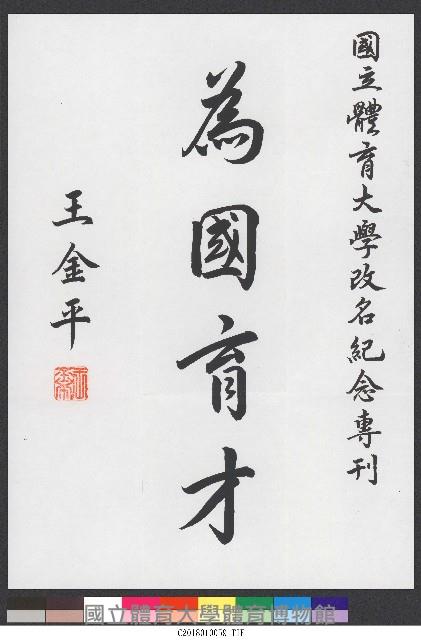 國立體育大學改名紀念專刊
為國育才
王金平
國立體育大學體育博物館
C2018010059.TIF